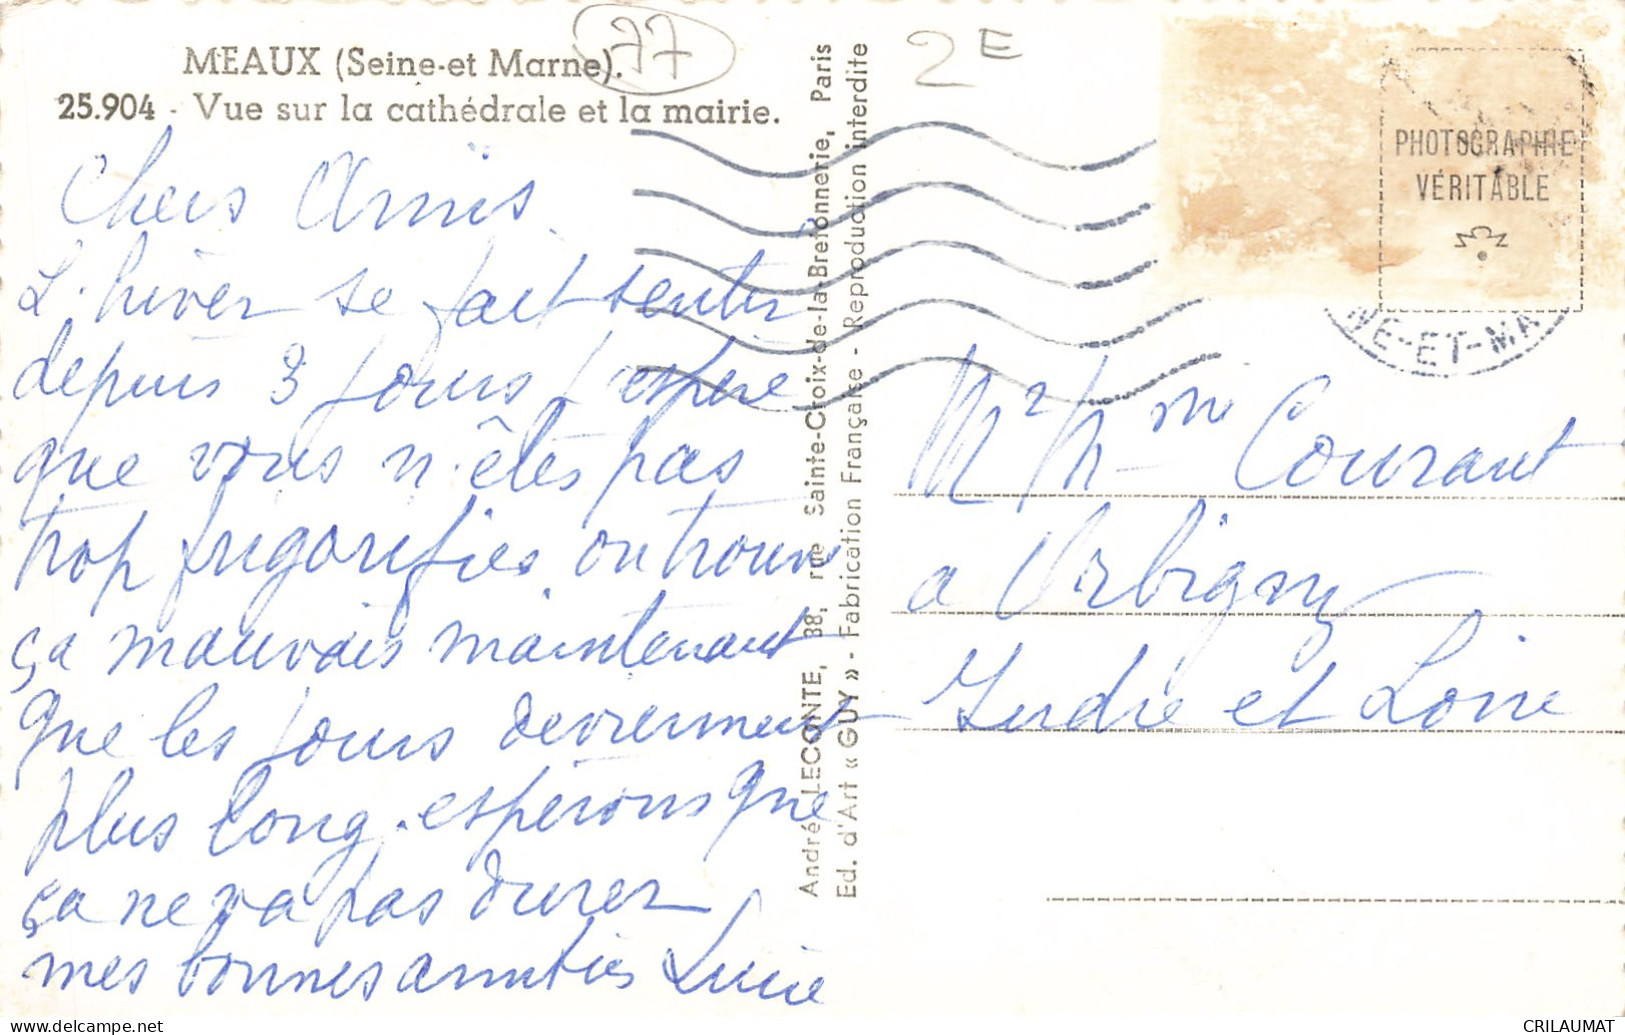 MEAUX (Seine-et Marne).
77
25.904 - Vue sur la cathédrale et la mairie.
2E
PHOTOGRAPHIE
VÉRITABLE
NE-ET-MA
Chers Amis
L'hiver se fait sentir
depuis 3 jours j'espère
que vous n'êtes pas
trop frigorifiés on trouve
ça mauvais maintenant
que les jours deviennent
plus long. espérons que
ça ne va pas durer
mes bonnes amitiés Lucie
André LECONTE, 38, rue Sainte-Croix-de-la-Bretonnerie, Paris
Ed. d'Art « GUY » - Fabrication Française - Reproduction interdite
Mr Mme Courant
a Orbigny
Indre et Loire
www.delcampe.net
CRILAUMAT